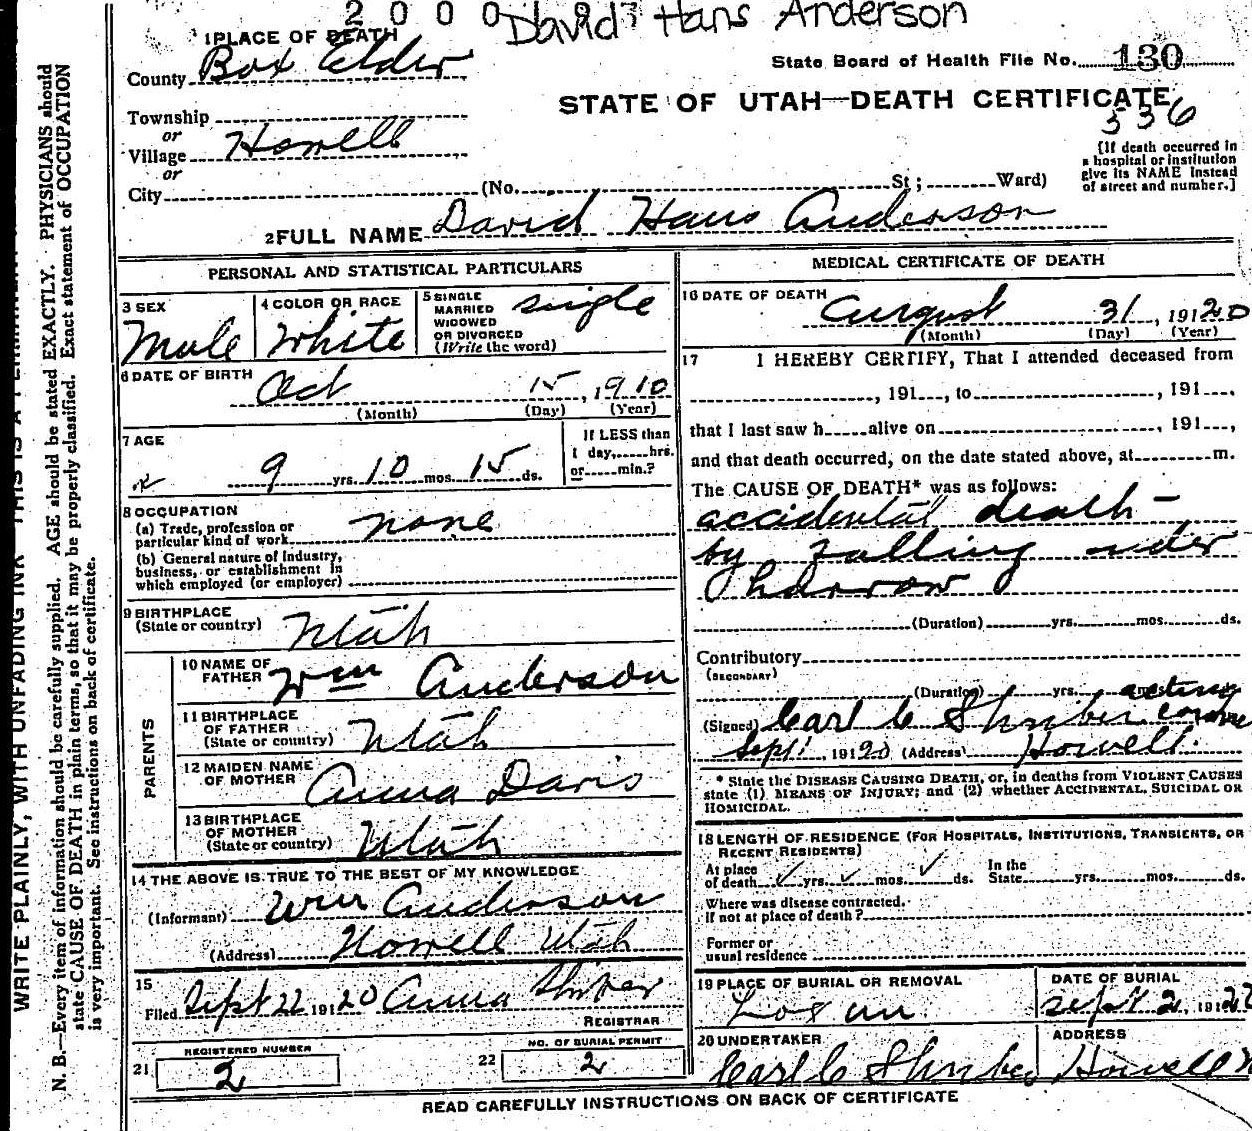 2 0 0 0
David Hans Anderson
1 PLACE OF DEATH
County Box Elder
State Board of Health File No. 130
STATE OF UTAH—DEATH CERTIFICATE
336
Township
or
Village Howell
or
City (No. St; Ward)
[If death occurred in
a hospital or institution
give its NAME instead
of street and number.]
2 FULL NAME David Hans Anderson
PERSONAL AND STATISTICAL PARTICULARS
3 SEX
Male
4 COLOR OR RACE
White
5 SINGLE
MARRIED
WIDOWED
OR DIVORCED
(Write the word)
single
6 DATE OF BIRTH
Oct 15, 1910
(Month) (Day) (Year)
7 AGE
9 yrs. 10 mos. 15 ds.
If LESS than
1 day, hrs.
or min.?
8 OCCUPATION
(a) Trade, profession or
particular kind of work none
(b) General nature of Industry,
business, or establishment in
which employed (or employer)
9 BIRTHPLACE
(State or country) Utah
PARENTS
10 NAME OF
FATHER Wm Anderson
11 BIRTHPLACE
OF FATHER
(State or country) Utah
12 MAIDEN NAME
OF MOTHER Anna Davis
13 BIRTHPLACE
OF MOTHER
(State or country) Utah
14 THE ABOVE IS TRUE TO THE BEST OF MY KNOWLEDGE
(Informant) Wm Anderson
(Address) Howell Utah
15
Filed Sept 22 1920 Anna
REGISTRAR
REGISTERED NUMBER
21 2
NO. OF BURIAL PERMIT
22 2
MEDICAL CERTIFICATE OF DEATH
16 DATE OF DEATH
August 31, 19120
(Month) (Day) (Year)
17 I HEREBY CERTIFY, That I attended deceased from
, 191 , to , 191 ,
that I last saw h alive on , 191 ,
and that death occurred, on the date stated above, at m.
The CAUSE OF DEATH* was as follows:
accidental death -
by falling under
harrow
(Duration) yrs. mos. ds.
Contributory
(SECONDARY)
(Duration) yrs. acting
(Signed) Carl C
Sept 1, 19120 (Address) Howell.
* State the DISEASE CAUSING DEATH, or, in deaths from VIOLENT CAUSES
state (1) MEANS OF INJURY; and (2) whether ACCIDENTAL, SUICIDAL OR
HOMICIDAL.
18 LENGTH OF RESIDENCE (FOR HOSPITALS, INSTITUTIONS, TRANSIENTS, OR
RECENT RESIDENTS)
At place
of death yrs. mos. ds.
In the
State yrs. mos. ds.
Where was disease contracted.
if not at place of death?
Former or
usual residence
19 PLACE OF BURIAL OR REMOVAL
Logan
DATE OF BURIAL
Sept 2, 191
20 UNDERTAKER
Carl C
ADDRESS
Howell
READ CAREFULLY INSTRUCTIONS ON BACK OF CERTIFICATE
WRITE PLAINLY, WITH UNFADING INK THIS IS A
N. B.—Every item of information should be carefully supplied. AGE should be stated EXACTLY. PHYSICIANS should
state CAUSE OF DEATH in plain terms, so that it may be properly classified. Exact statement of OCCUPATION
is very important. See instructions on back of certificate.